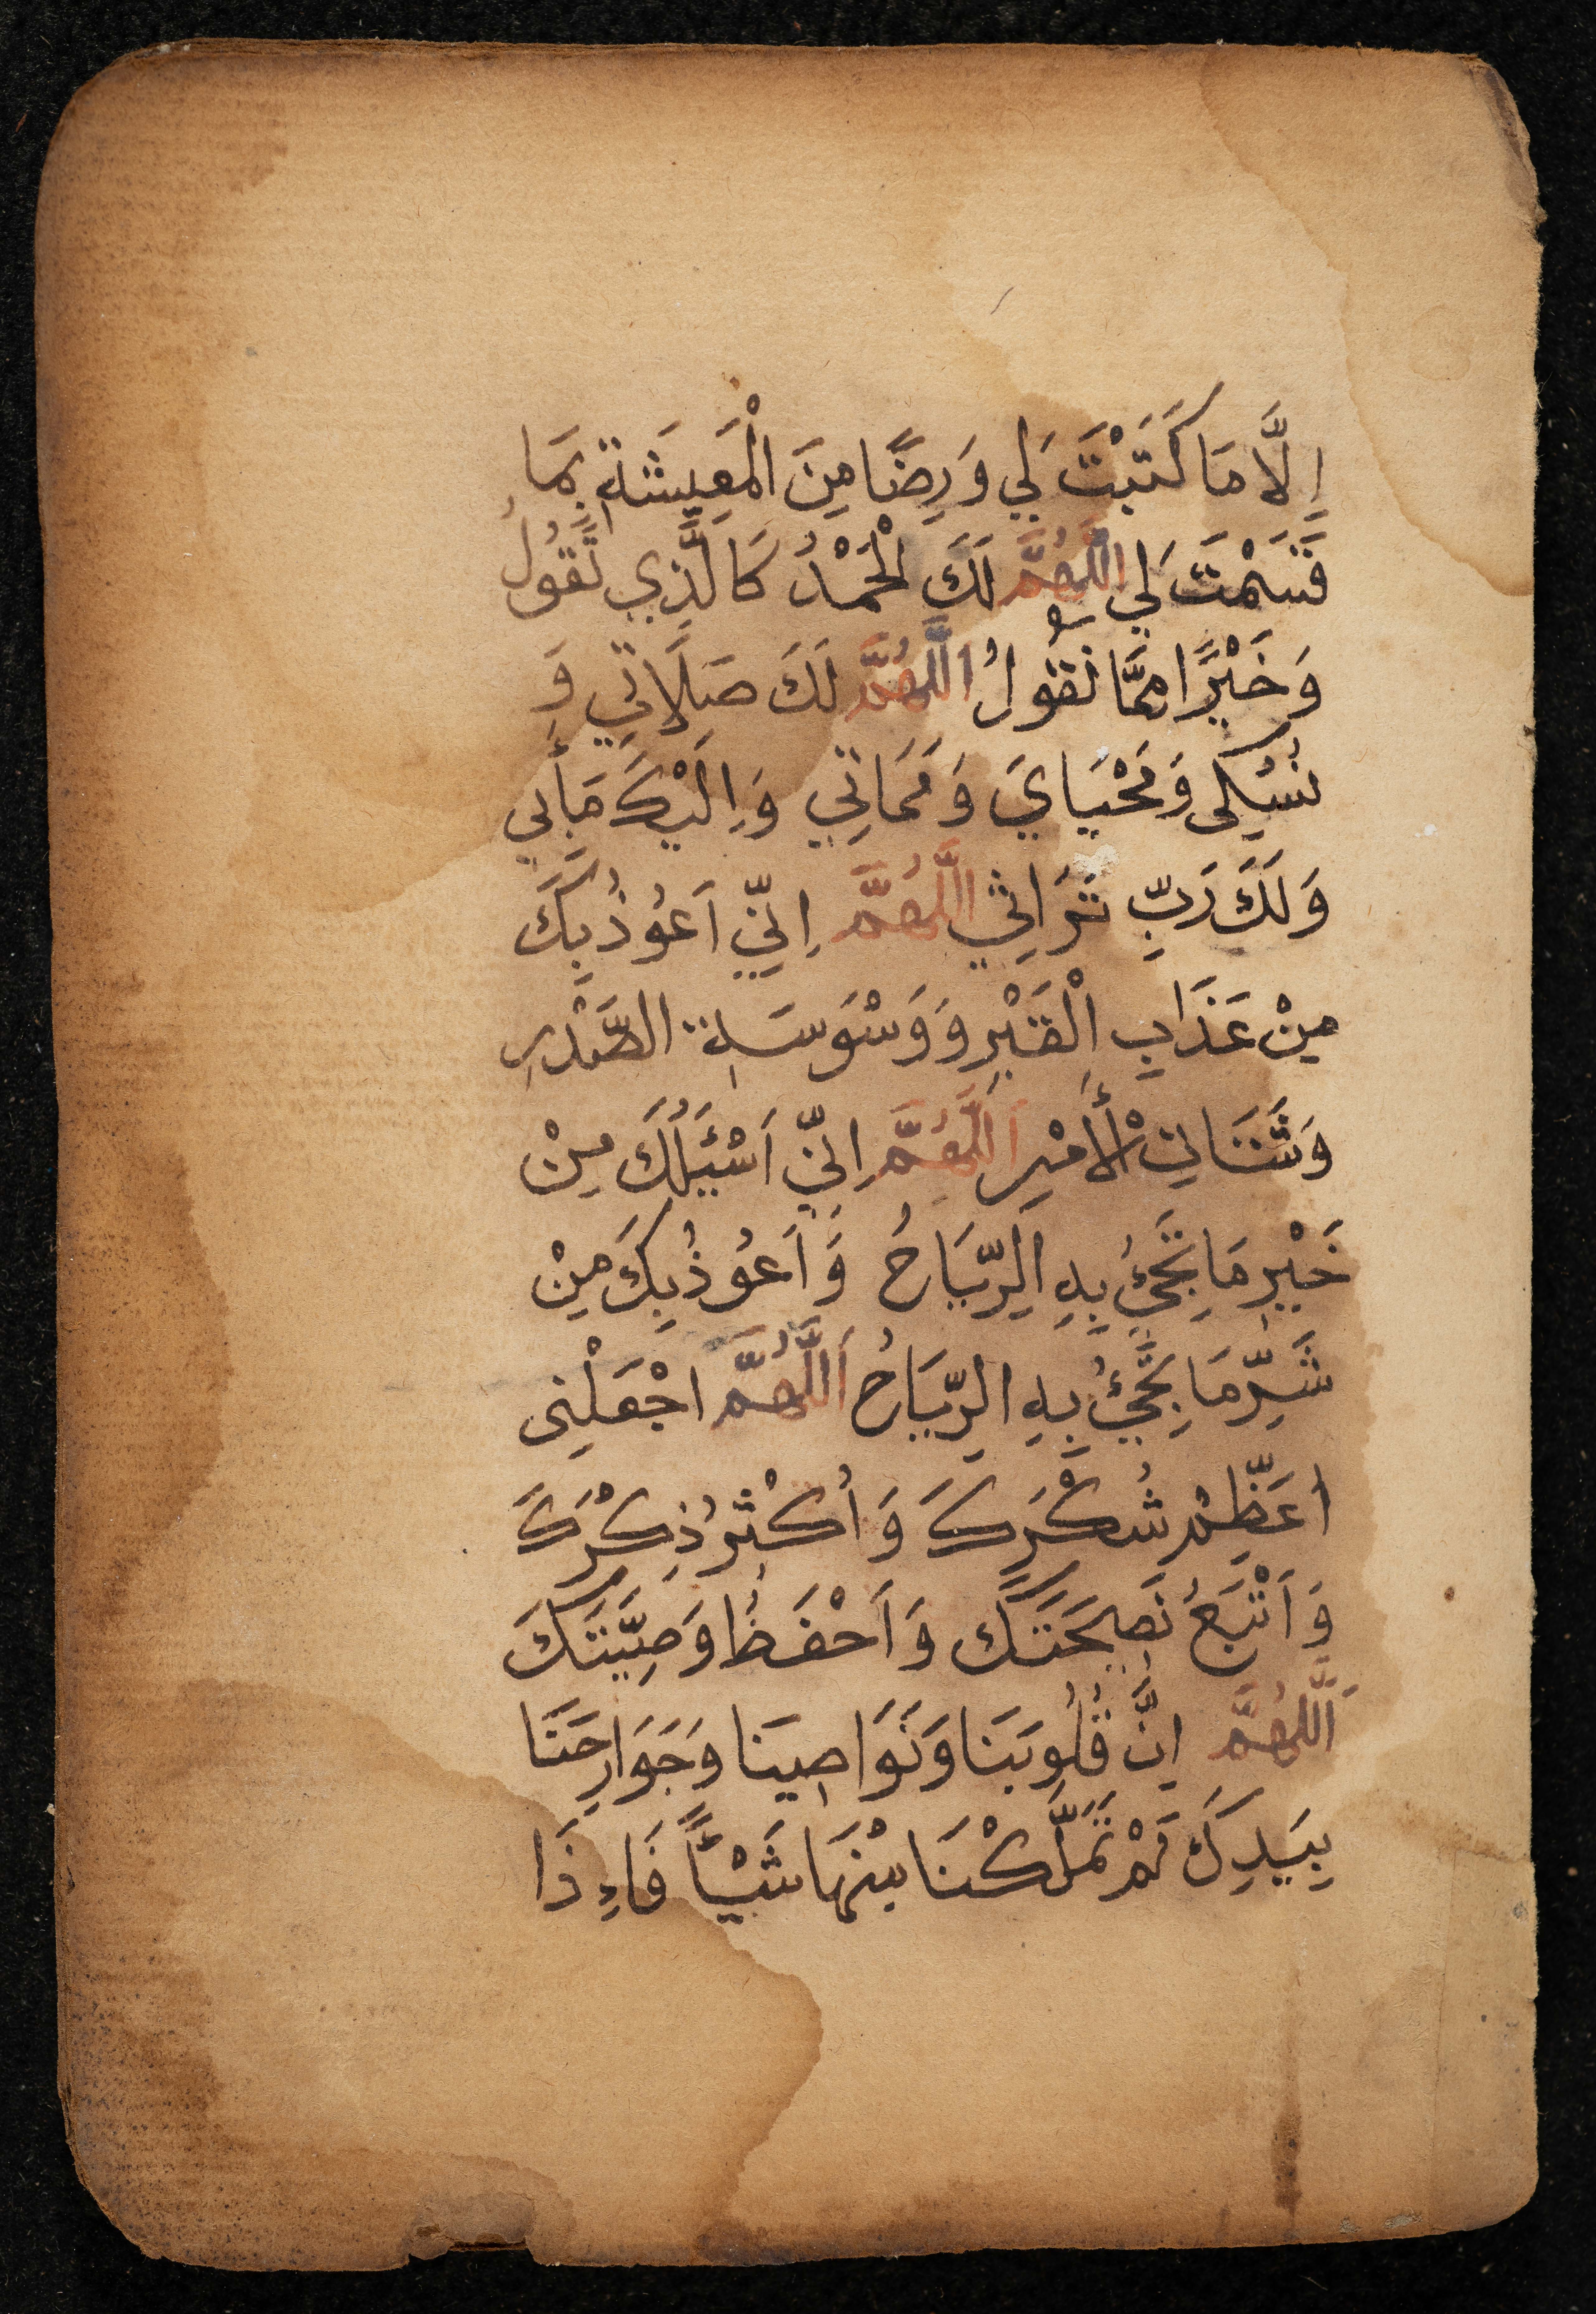 اِلَّا مَا كَتَبْتَ لِي وَرِضًا مِنَ الْمَعِيشَةِ بِمَا
قَسَمْتَ لِي اللَّهُمَّ لَكَ الْحَمْدُ كَالَّذِي تَقُولُ
وَخَيْرًا مِمَّا نَقُولُ اللَّهُمَّ لَكَ صَلَاتِي وَ
نُسُكِى وَمَحْيَايَ وَمَمَاتِي وَاِلَيْكَ مَأَبِي
وَلَكَ رَبِّ تُرَاثِي اللَّهُمَّ اِنِّي اَعُوذُ بِكَ
مِنْ عَذَابِ الْقَبْرِ وَوَسْوَسَةِ الصَّدْرِ
وَشَتَاتِ الْأَمْرِ اَللَّهُمَّ اِنِّي اَسْئَلُكَ مِنْ
خَيْرِ مَا تَجِئُ بِهِ الرِّيَاحُ وَاَعُوذُ بِكَ مِنْ
شَرِّ مَا تَجِئُ بِهِ الرِّيَاحُ اَللَّهُمَّ اجْعَلْنِى
اُعَظِّمْ شُكْرَكَ وَاُكْثِرُ ذِكْرَكَ
وَاَتْبَعُ نَصِيحَتَكَ وَاَحْفَظُ وَصِيَّتَكَ
اَللَّهُمَّ اِنَّ قُلُوبَنَا وَنَوَاصِيَنَا وَجَوَارِحَنَا
بِيَدِكَ لَمْ تُمَلِّكْنَا مِنْهَا شَيْئًا فَاِذَا